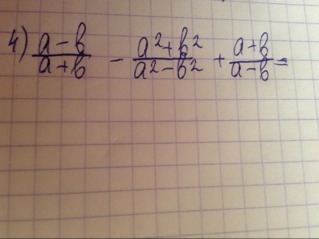 4) \frac{a-b}{a+b} - \frac{a^2+b^2}{a^2-b^2} + \frac{a+b}{a-b} =